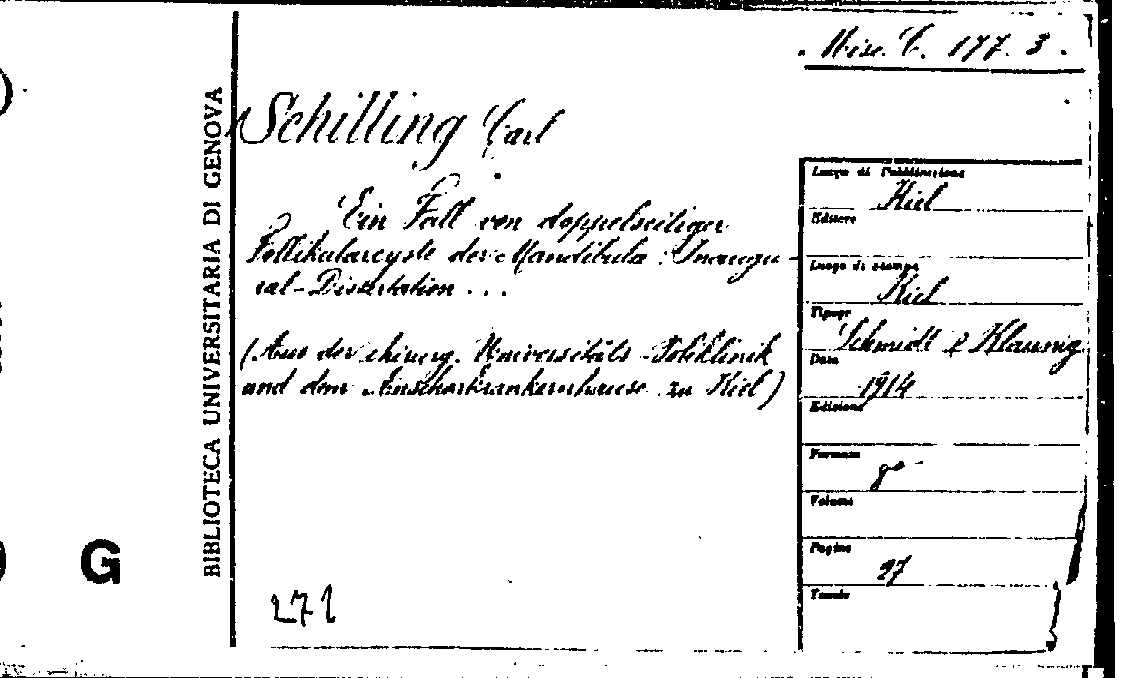 Misc. C. 177. 3.
BIBLIOTECA UNIVERSITARIA DI GENOVA
Schilling Carl
Ein Fall von doppelseitiger
Follikularcyste der Mandibula. Inaugu-
ral-Dissertation ...
(Aus der chirurg. Universitäts-Poliklinik
und dem Anscharkrankenhause zu Kiel)
271
G
Luogo di Pubblicazione
Kiel
Editore
Luogo di stampa
Kiel
Tipogr
Schmidt & Klaunig
Data
1914
Edizione
Formato
8°
Volume
Pagine
27
Tavole